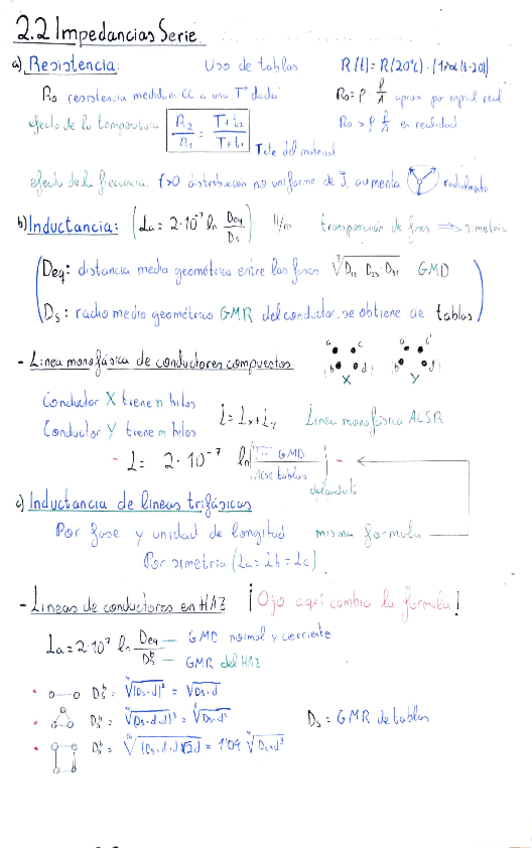 2.2 Impedancias Serie
a) Resistencia: Uso de tablas R(t)=R(20°C)·[1+α(t-20)]
R₀ resistencia medida en CC a una Tª dada R₀=ρ·l/A aprox por espiral real
efecto de la temperatura R₂/R₁ = T+t₂/T+t₁ R₀>ρ l/A en realidad
T cte del material
efecto de la frecuencia. f>0 distribución no uniforme de J, aumenta radialmente
b) Inductancia: (La = 2·10⁻⁷ ln Deq/Ds) H/m transposición de fases ⇒ simetría
Deq: distancia media geométrica entre las fases ∛D₁₂·D₂₃·D₃₁ GMD
Ds: radio medio geométrico GMR del conductor. se obtiene de tablas
- Línea monofásica de conductores compuestos
a c b d X a' c' b' d' Y
Conductor X tiene n hilos
L = Lx + Ly Línea monofásica ACSR
Conductor Y tiene m hilos
- L = 2·10⁻⁷ ln GMD / tablas
c) Inductancia de líneas trifásicas
Por fase y unidad de longitud misma formula
Por simetría (La = Lb = Lc)
- Líneas de conductores en HAZ ¡Ojo aquí cambia la formula!
La = 2·10⁻⁷ ln Deq/Dsᵇ — GMD normal y corriente
— GMR del HAZ
• Dsᵇ = ⁴√(Ds·d)² = √Ds·d
• Dsᵇ = ⁹√(Ds·d·d)³ = ∛Ds·d² Ds = GMR de tablas
• Dsᵇ = ¹⁶√(Ds·d·d·√2d)⁴ = 1'09 ⁴√Ds·d³